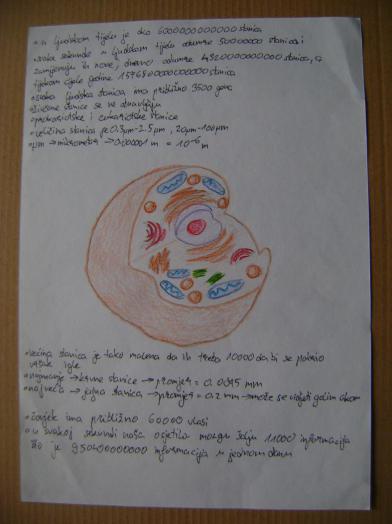 • u ljudskom tijelu je oko 60000000000000 stanica
• svake sekunde u ljudskom tijelu odumre 50000000 stanica i
zamjenjuju ih nove, dnevno odumre 4320000000000 stanica, a
tijekom cijele godine stanica
• svaka ljudska stanica ima približno 3500 gena
• živčane stanice se ne obnavljaju
• prokariotske i eukariotske stanice
• veličina stanica je 0.3µm-2.5µm, 20µm-100µm
• µm → mikrometar → 0.000001 m = 10⁻⁶ m
• većina stanica je tako malena da ih treba 10000 da bi se pokrio
vršak igle
• najmanje → krvne stanice → promjer = mm
• najveća → jajna stanica → promjer = 0.2 mm → može se vidjeti golim okom
• čovjek ima približno 60000 vlasi
• u svakoj sekundi naša osjetila mozgu šalju 11000 informacija
što je 950400000 informacija u jednom danu